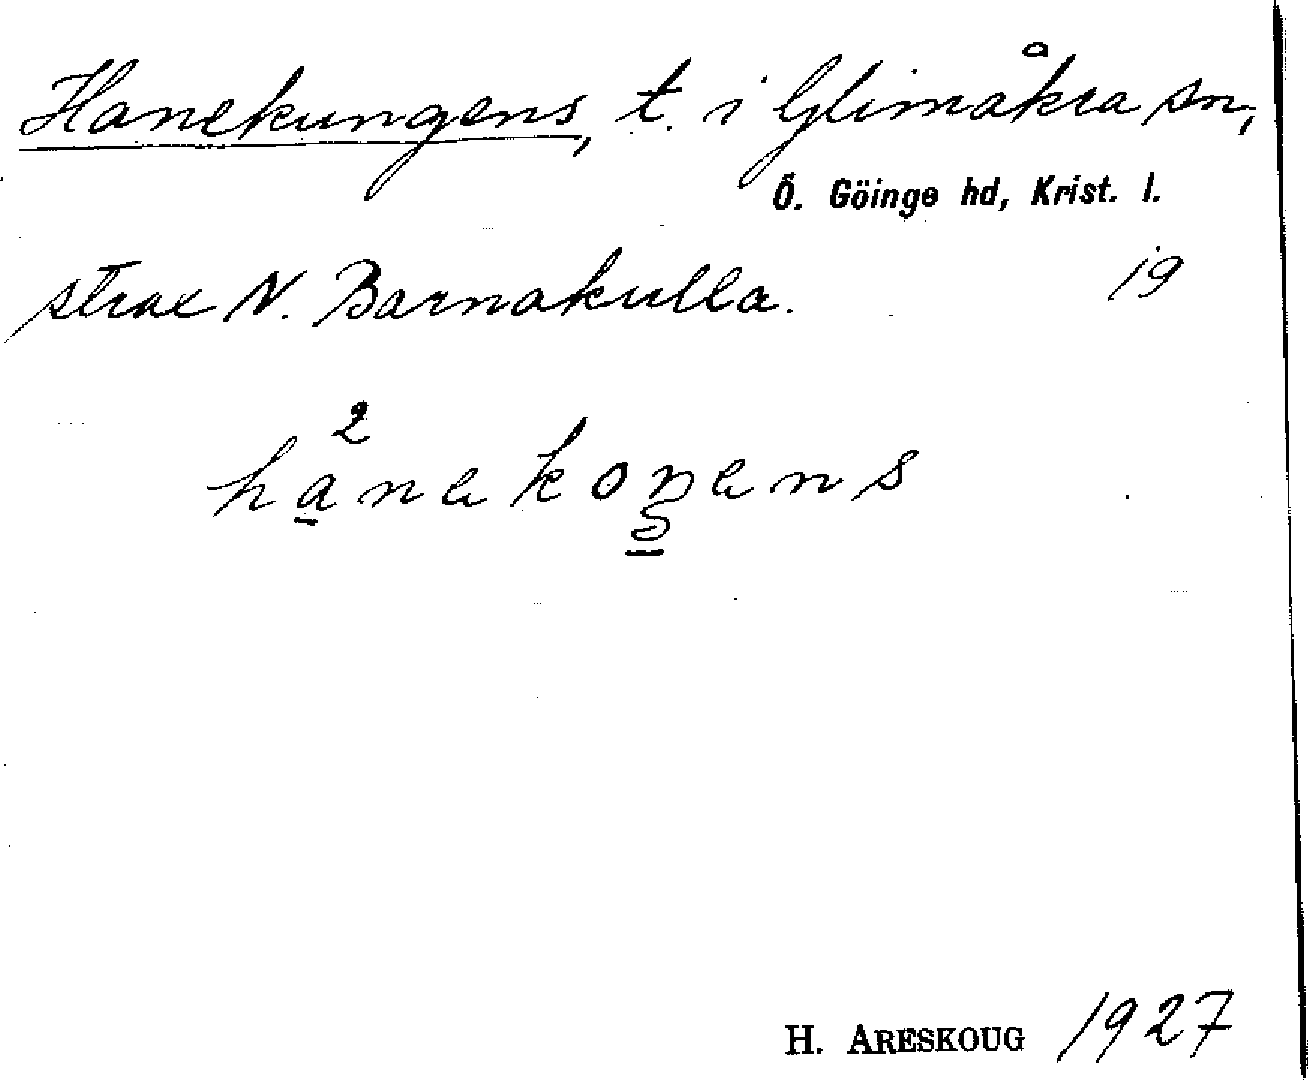 Hanekungens, t. i Glimåkra sn,
Ö. Göinge hd, Krist. l.
strax N. Barnakulla. 19
2
hanekoŋens
H. ARESKOUG 1927